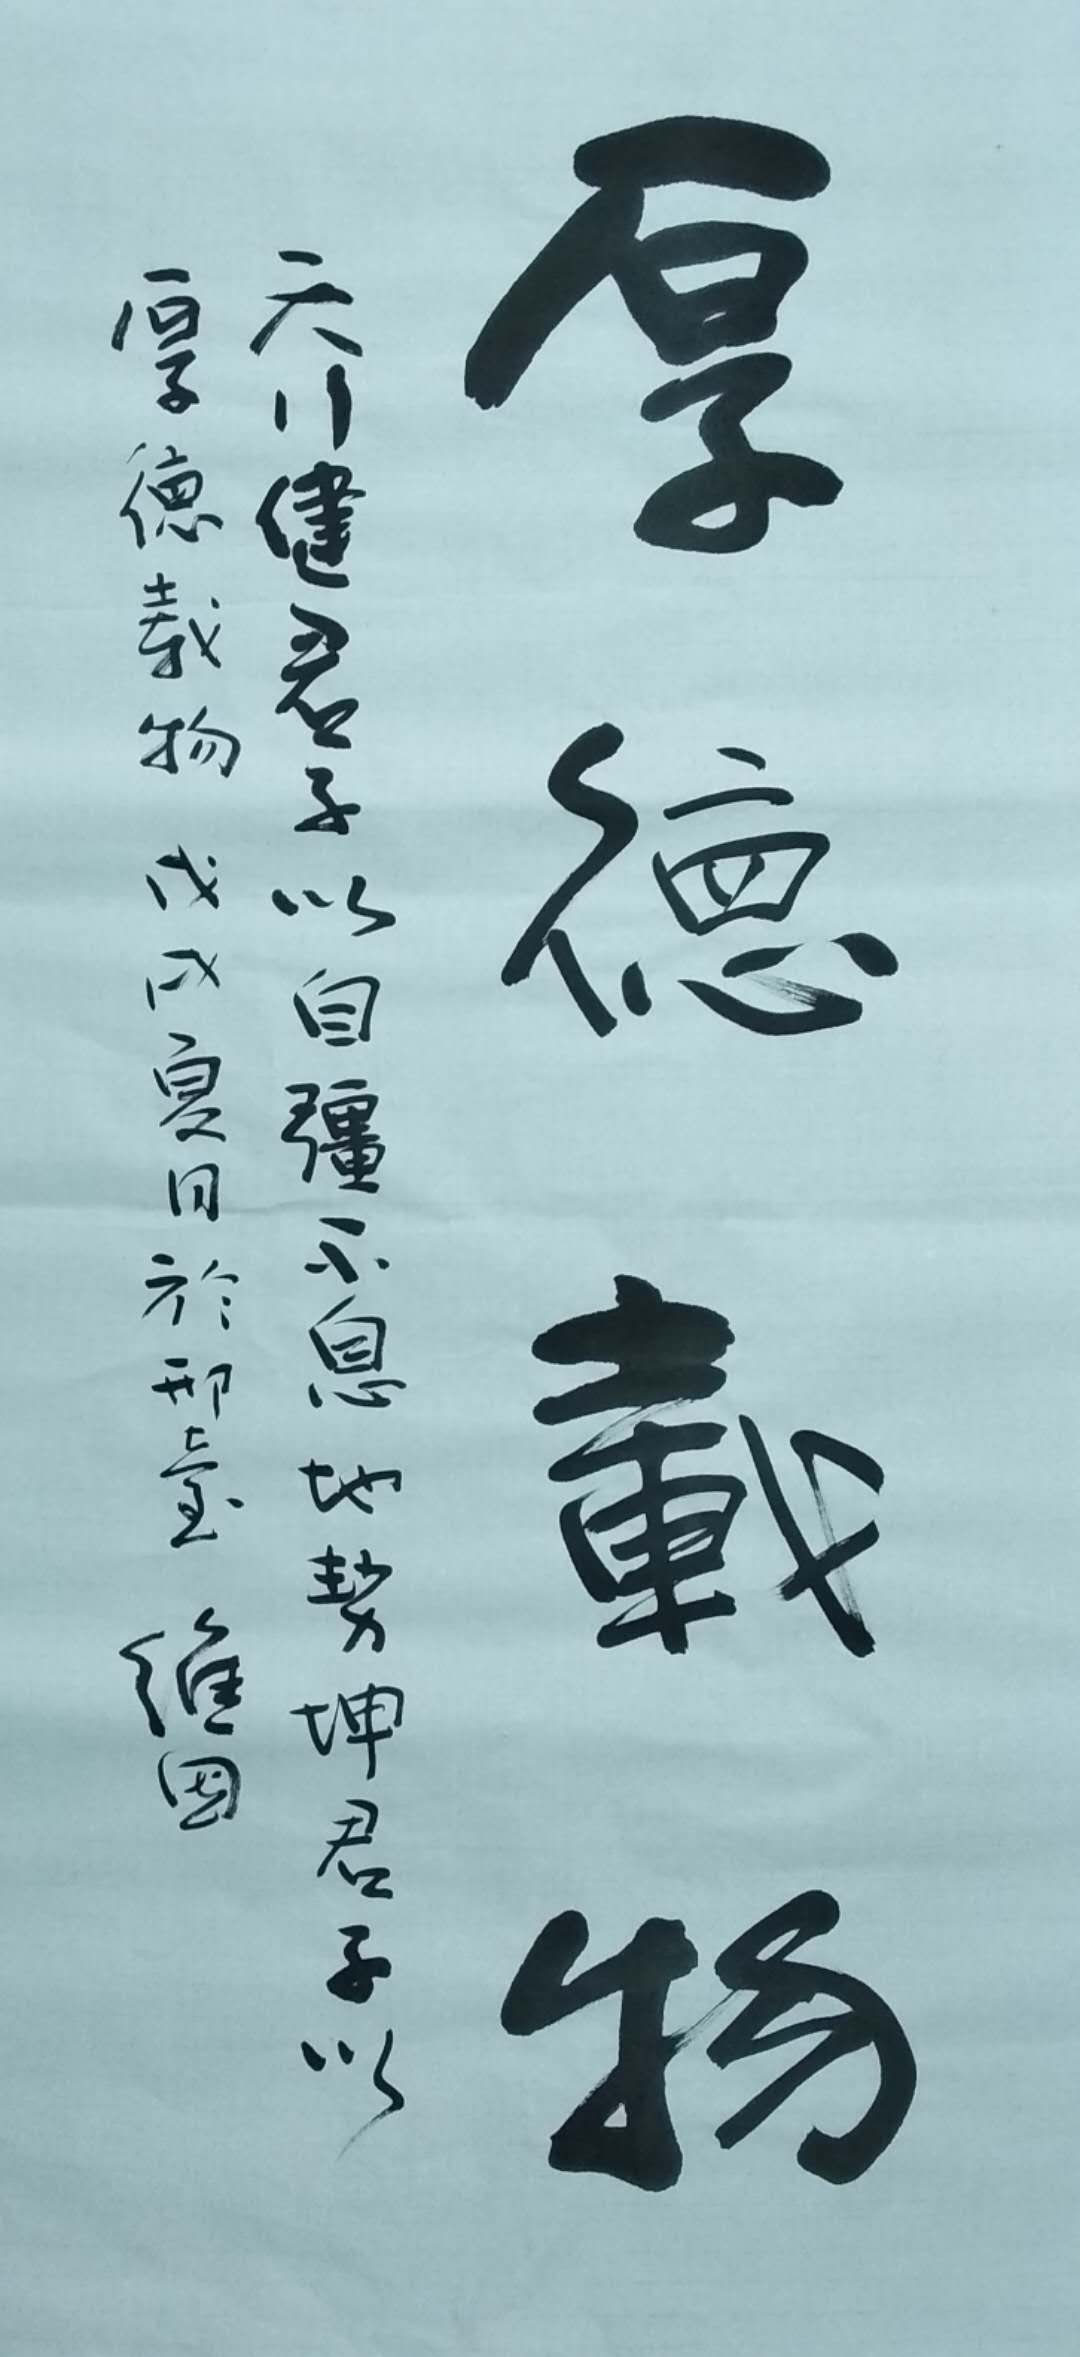 厚德載物
天行健君子以自彊不息地勢坤君子以
厚德載物 戊戌夏日於邢臺 維国